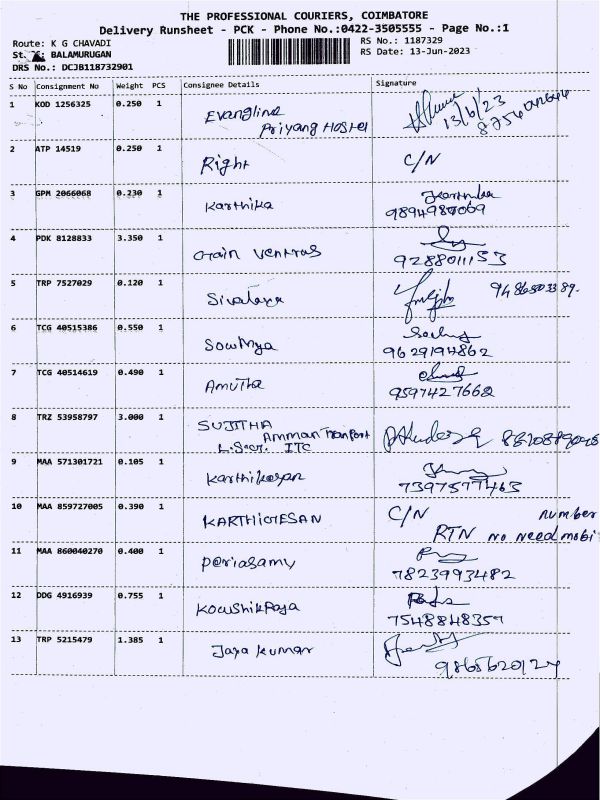 THE PROFESSIONAL COURIERS, COIMBATORE
Delivery Runsheet - PCK - Phone No.:0422-3505555 - Page No.:1
Route: K G CHAVADI RS No.: 1187329
BALAMURUGAN RS Date: 13-Jun-2023
DRS No.: DCJB118732901
S No Consignment No Weight PCS Consignee Details Signature
1 KOD 1256325 0.250 1 Evanglina
Priyang Hostel 13/6/23
2 ATP 14519 0.250 1 Right C/N
3 GPM 2066068 0.230 1 Karthika
9894987069
4 PDK 8128833 3.350 1
9288011153
5 TRP 7527029 0.120 1
6 TCG 40515386 0.550 1 Sowmya
9629194862
7 TCG 40514619 0.490 1 Amutha
9597427662
8 TRZ 53958797 3.000 1 SUJITHA
Amman Tranport
ITC
9 MAA 571301721 0.105 1 Karthikeyan
7397577463
10 MAA 859727005 0.390 1 C/N number
RTN no need mobi
11 MAA 860040270 0.400 1 Periasamy
7823993482
12 DDG 4916939 0.755 1
7548848357
13 TRP 5215479 1.385 1 Jaya kumar
9865620124